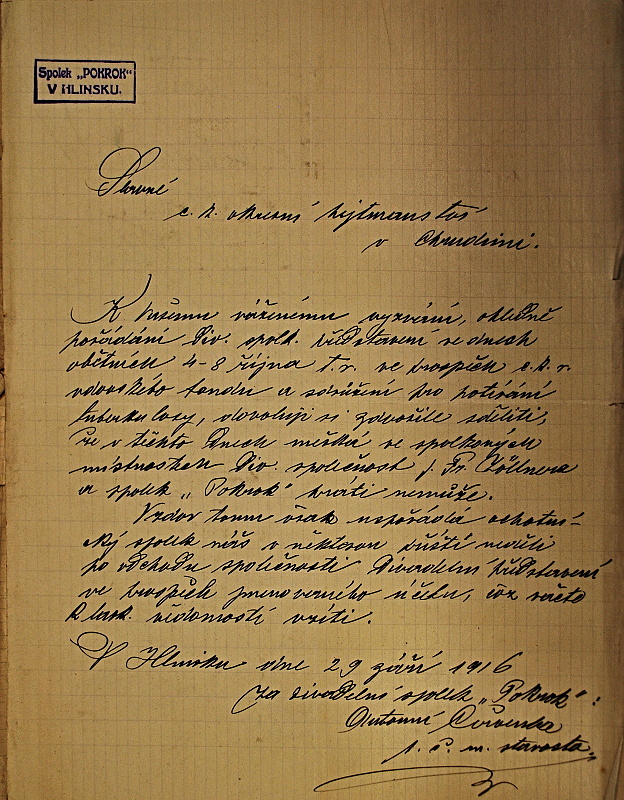 Spolek „POKROK“
V HLINSKU.
Slavné
c. k. okresní hejtmanství
v Chrudimi.
K Vašemu váženému vyzvání, ohledně
pořádání div. spolk. představení ve dnech
obětních 4-8 října t. r. ve prospěch c. k. r.
vdovského fondu a sdružení pro potírání
tuberkulosy, dovoluji si zdvořile sděliti,
že v těchto dnech mešká ve spolkových
místnostech div. společnost J. Fr. Zöllnera
a spolek „Pokrok“ hráti nemůže.
Vzdor tomu však uspořádá ochotni-
cký spolek náš v některou příští neděli
po odchodu společnosti divadelní představení
ve prospěch jmenovaného účelu, což račte
k lask. vědomosti vzíti.
V Hlinsku dne 29 září 1916
Za divadelní spolek „Pokrok“:
Antonín Červenka
t. č. m. starosta.